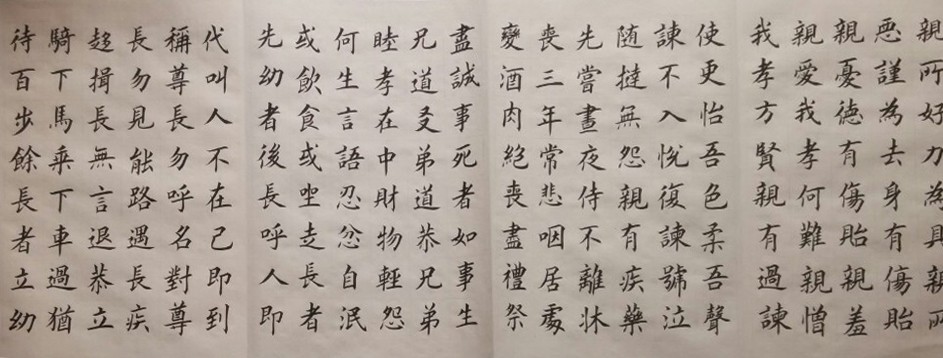 親所好力為具親所
惡謹為去身有傷貽
親憂德有傷貽親羞
親愛我孝何難親憎
我孝方賢親有過諫
使更怡吾色柔吾聲
諫不入悅復諫號泣
随撻無怨親有疾藥
先嘗晝夜侍不離牀
喪三年常悲咽居處
變酒肉絕喪盡禮祭
盡誠事死者如事生
兄道友弟道恭兄弟
睦孝在中財物輕怨
何生言語忍忿自泯
或飲食或坐走長者
先幼者後長呼人即
代叫人不在己即到
稱尊長勿呼名對尊
長勿見能路遇長疾
趨揖長無言退恭立
騎下馬乘下車過猶
待百步餘長者立幼